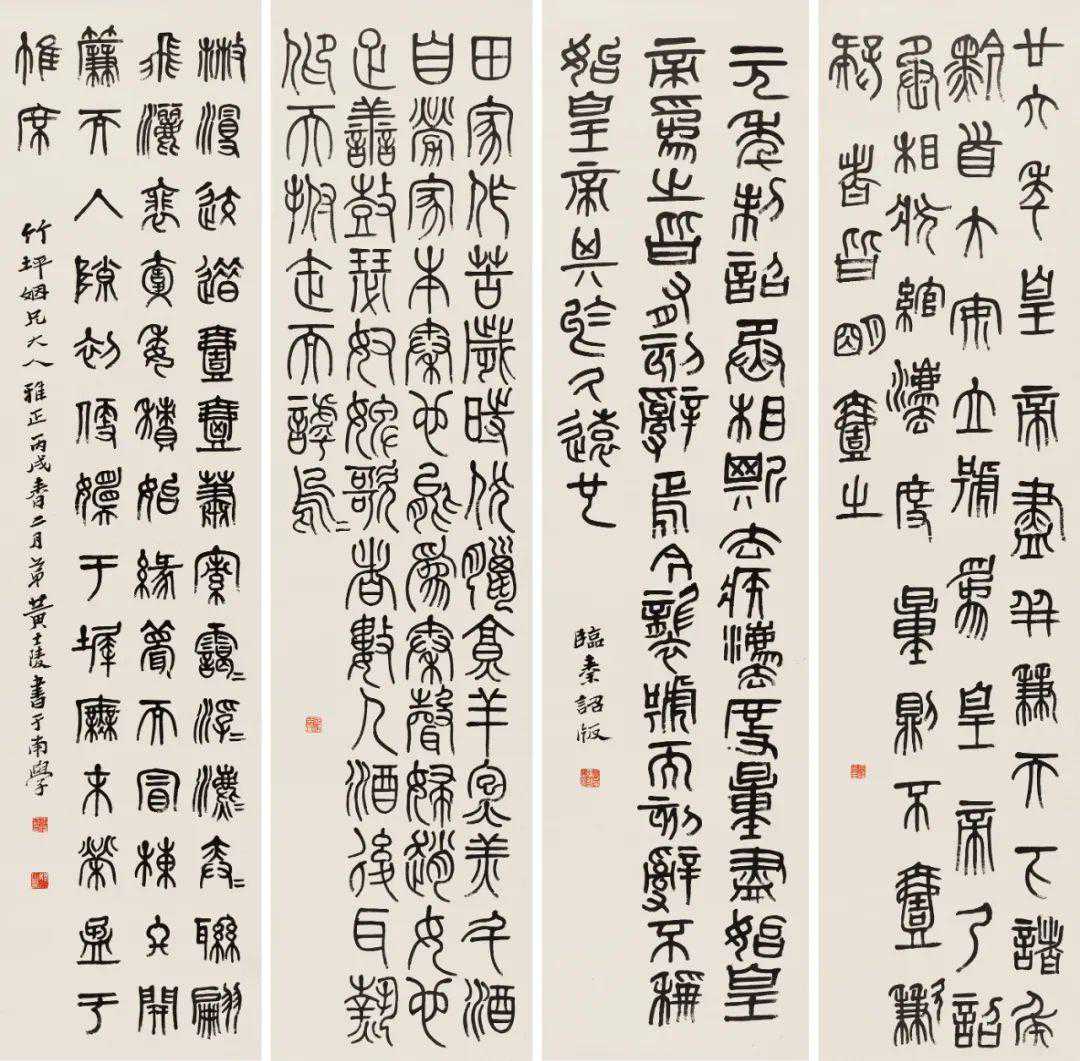 廿六年皇帝盡并兼天下諸侯
黔首大安立號爲皇帝乃詔
丞相狀綰灋度量則不壹歉
疑者皆明壹之
元年制詔丞相斯去疾灋度量盡始皇
帝爲之皆有刻辭焉今襲號而刻辭不稱
始皇帝其於久遠世
臨秦詔版
田家作苦歲時伏臘亨羊炰羔斗酒
自勞家本秦也能爲秦聲婦趙女也
疋善鼓瑟奴婢歌者數人酒後耳熱
仰天拊缶而謼烏〻
散漫交錯壹壺蕭索藹〻浮〻瀌〻弈〻聯翩
飛灑裵回委積始緣甍而冒棟終開
簾而入隙初便嬛于墀廡末縈盈于
帷席
竹坪姻兄大人雅正丙戌春二月弟黃士陵書于南學